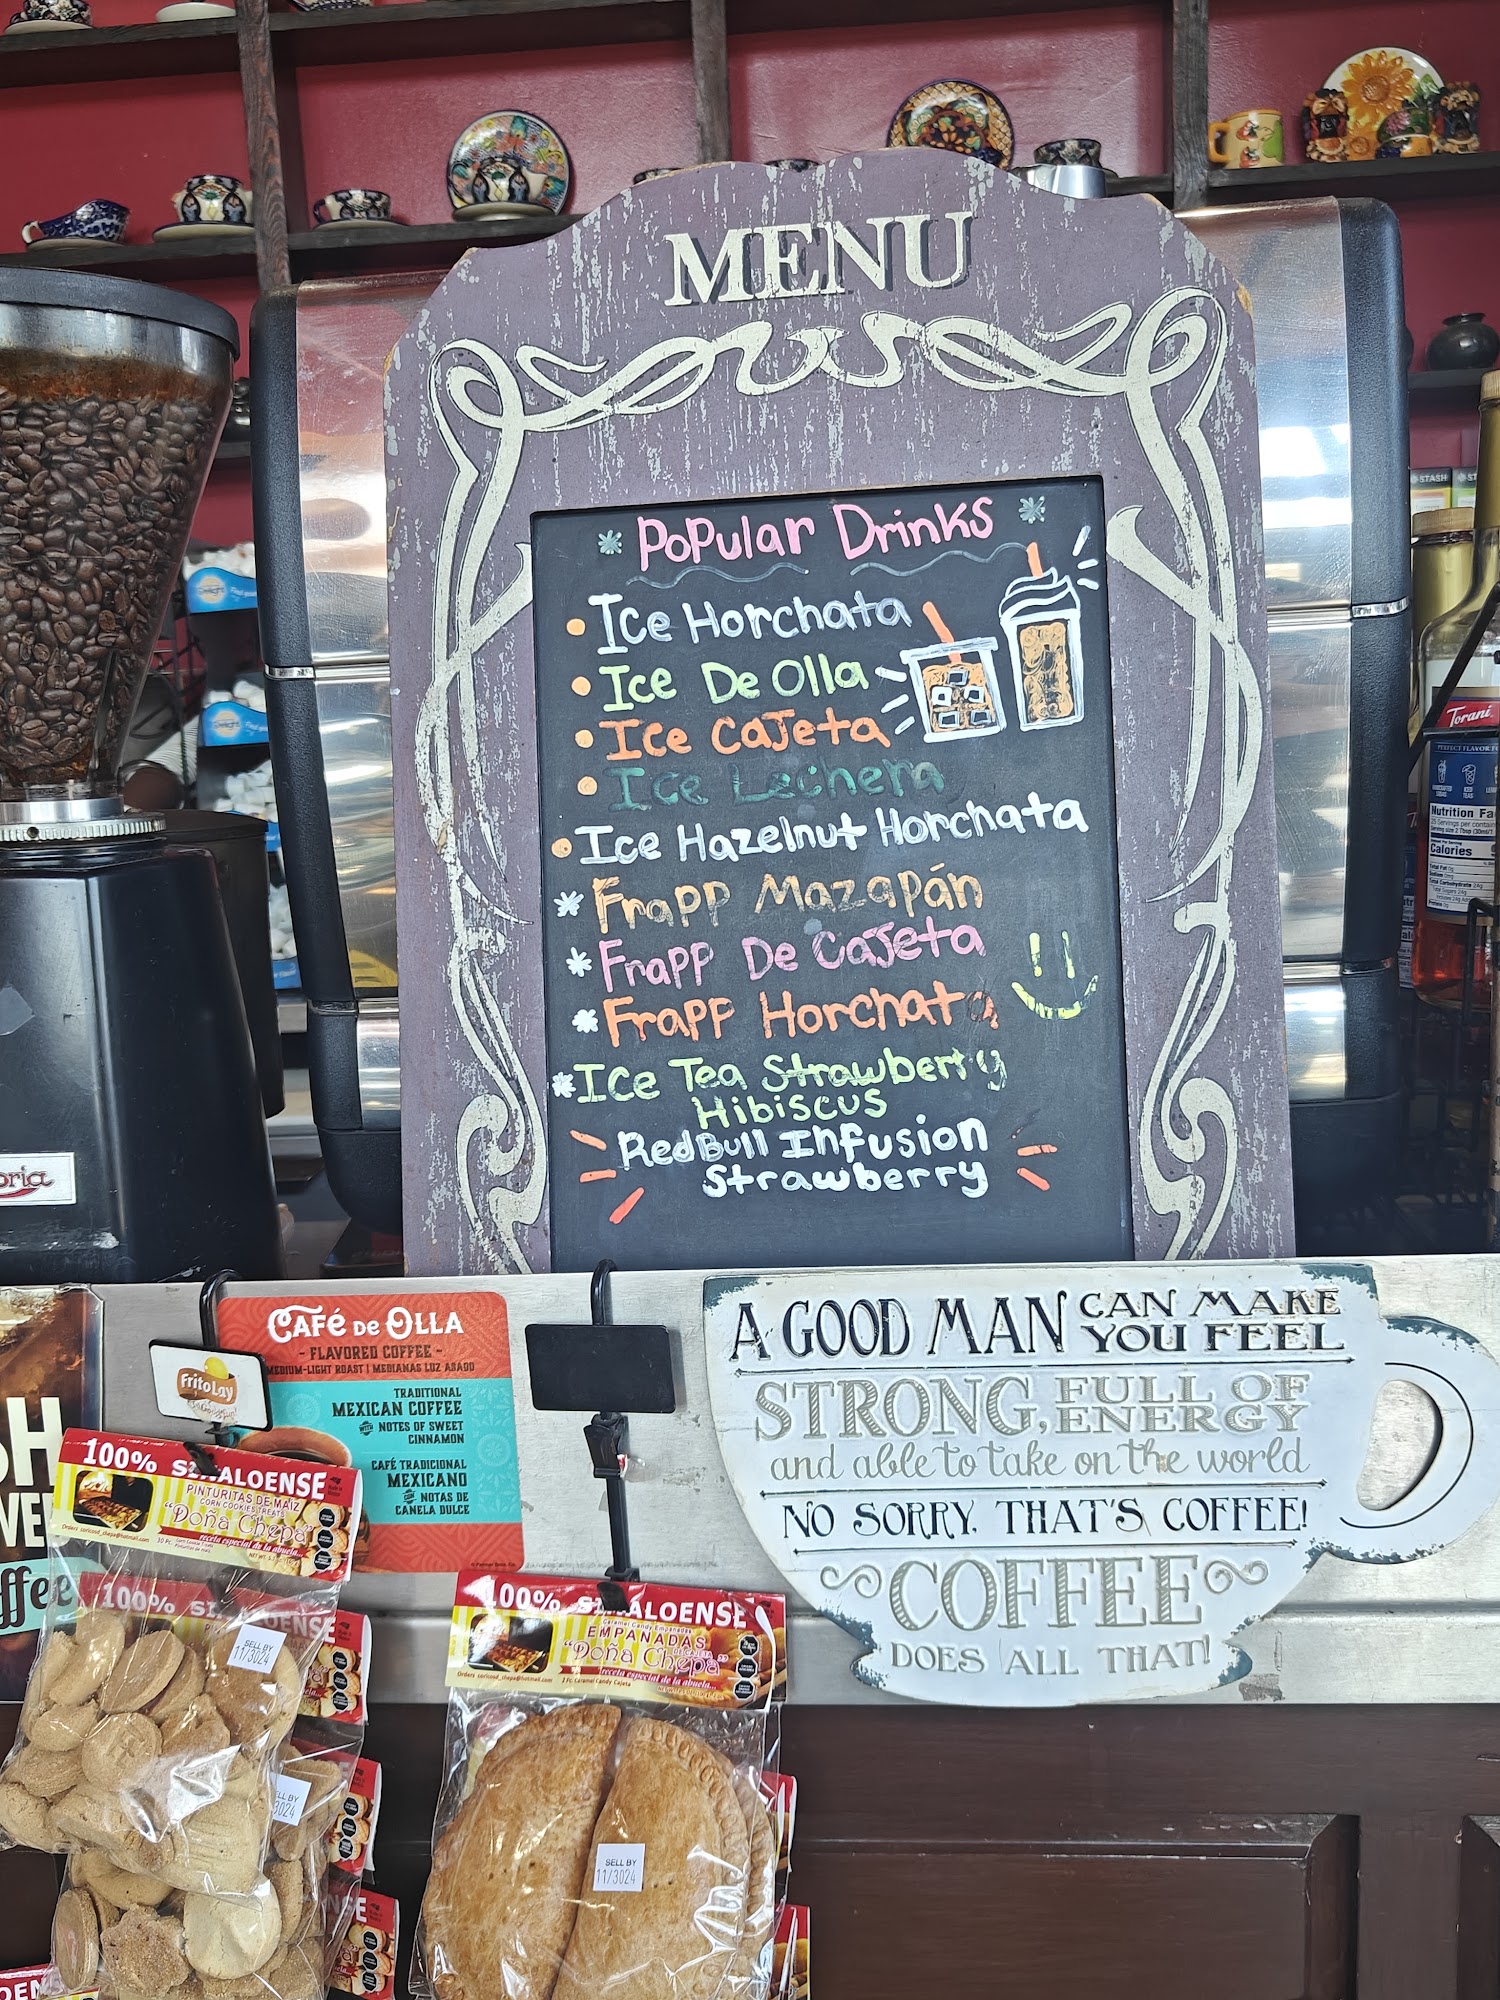 MENU
Popular Drinks
Ice Horchata
Ice De Olla
Ice Cajeta
Ice Lechera
Ice Hazelnut Horchata
Frapp Mazapán
Frapp De Cajeta
Frapp Horchata
Ice Tea Strawberry
Hibiscus
RedBull Infusion
Strawberry
STASH
STASH
Torani
Nutrition
Calories
CAFÉ DE OLLA
- FLAVORED COFFEE -
MEDIUM-LIGHT ROAST | MEDIANAS LUZ ASADO
TRADITIONAL
MEXICAN COFFEE
WITH NOTES OF SWEET
CINNAMON
CAFÉ TRADICIONAL
MEXICANO
CON NOTAS DE
CANELA DULCE
FritoLay
A GOOD MAN CAN MAKE
YOU FEEL
STRONG, FULL OF
ENERGY
and able to take on the world
NO SORRY, THAT'S COFFEE!
COFFEE
DOES ALL THAT!
100% SINALOENSE
PINTURITAS DE MAIZ
CORN COOKIES TREATS
"Doña Chepa"
receta especial de la abuela...
SELL BY
11/3024
100% SINALOENSE
Caramel Candy Empanadas
EMPANADAS
DE CAJETA
"Doña Chepa"
receta especial de la abuela...
SELL BY
11/3024